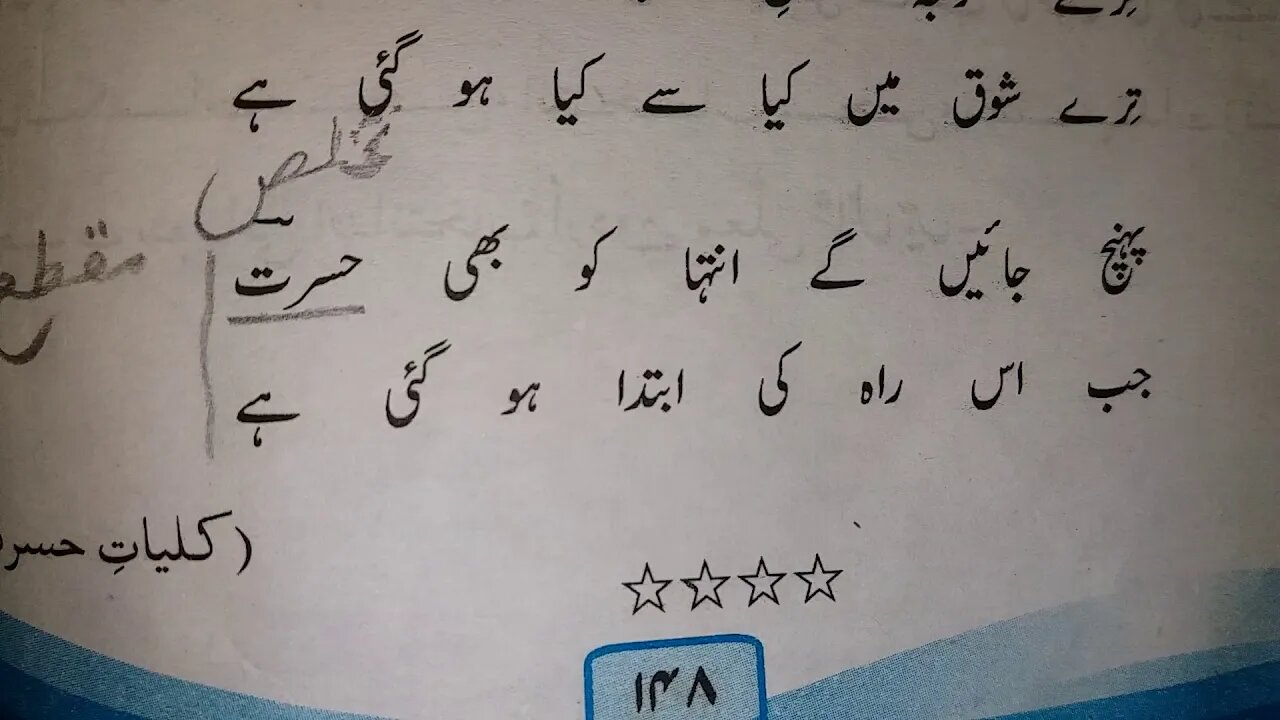 ترے
ترے شوق میں کیا سے کیا ہو گئی ہے
تخلص
پہنچ جائیں گے انتہا کو بھی حسرتؔ
مقطع
جب اس راہ کی ابتدا ہو گئی ہے
(کلیاتِ حسر
☆☆☆☆
۱۴۸